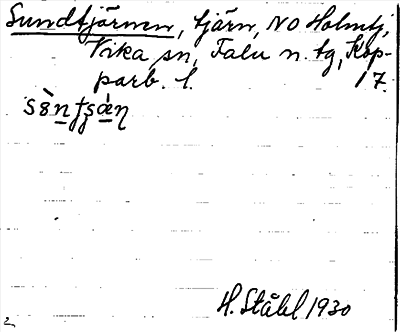 Sundtjärnen, tjärn, NO Holmtj,
Vika sn, Falu n. tg, Kop-
parb. l. 17.
H. Ståhl 1930
2